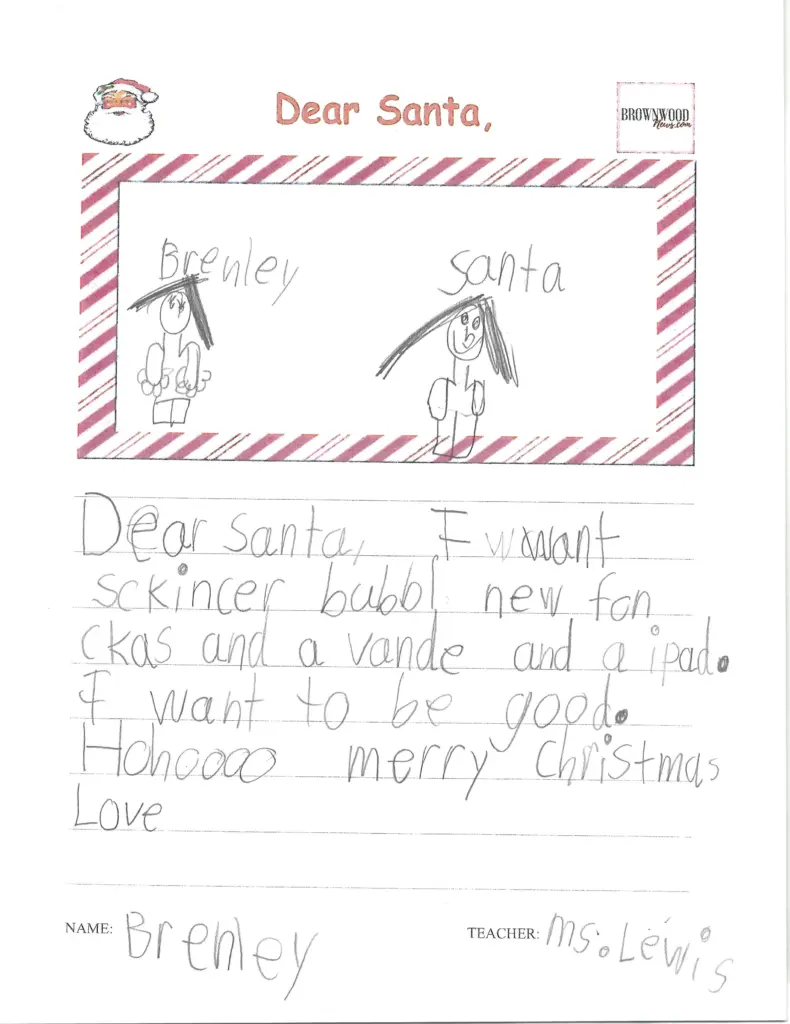 Dear Santa,
BROWNWOOD
News.com
Brenley
Santa
Dear Santa, I wwant
sckincer bubbl new fon
ckas and a vande and a ipad.
I want to be good.
Hohoooo merry christmas
Love
NAME: Brenley
TEACHER: Ms. Lewis